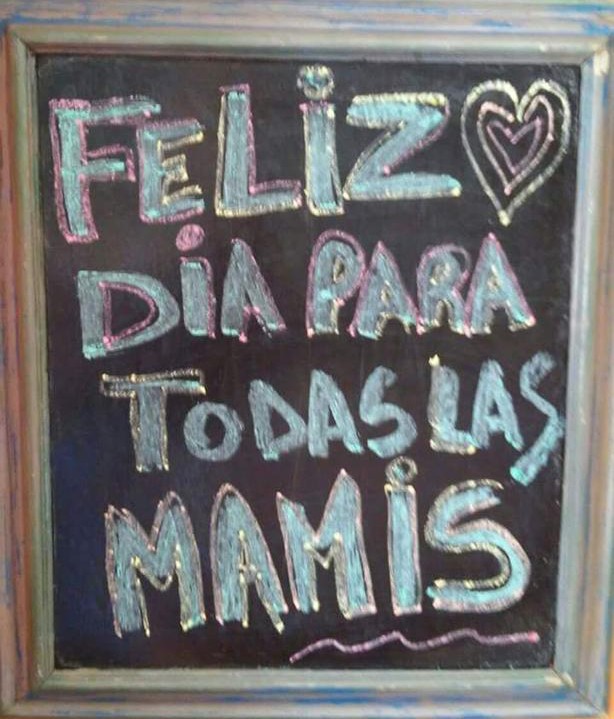 FELiZ
DiA PARA
ToDAS LAS
MAMiS